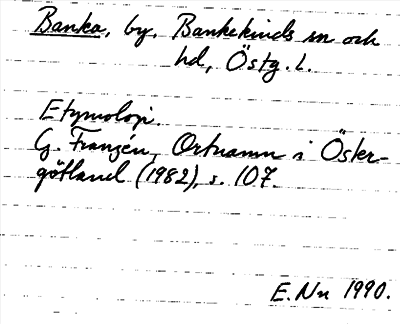 Banka, by, Bankekinds sn och
hd, Östg. l.
Etymologi.
G. Franzén, Ortnamn i Öster-
götland (1982), s. 107.
E. Nn 1990.